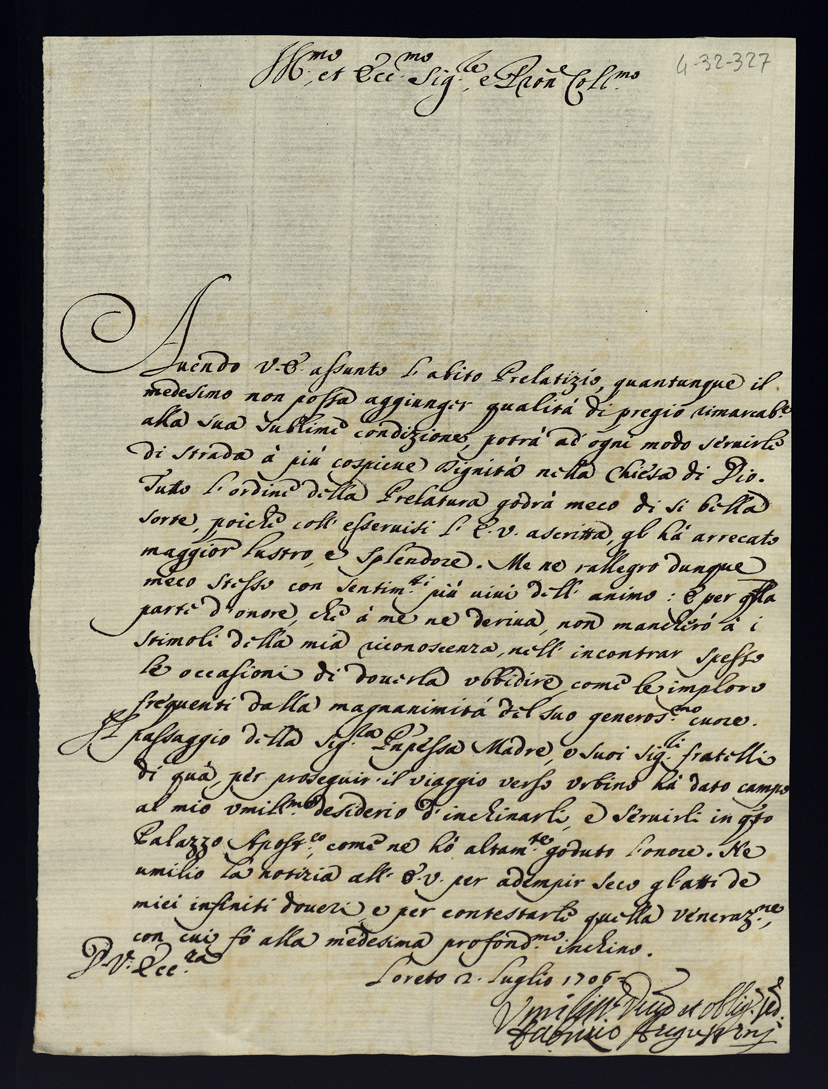 4-32-327
Ill.mo, et Ecc.mo Sig.re, e Pron Coll.mo
Auendo V.E. assunto l'abito Prelatizio, quantunque il
medesimo non possa aggiunger qualità di pregio rimarcab.e
alla sua sublime condizione, potrà ad ogni modo seruirle
di strada à più cospicue Dignità nella Chiesa di Dio.
Tutto l'ordine della Prelatura godrà meco di si bella
sorte, poiche coll'esseruisi l'E.V. ascritta, gl'hà arrecato
maggior lustro, e splendore. Me ne rallegro dunque
meco stesso con sentim.ti più uiui dell'animo: E per qlla
parte d'onore, che à me ne deriua, non mancherò à i
stimoli della mia riconoscenza, nell'incontrar spesso
le occasioni di douerla ubbidire, come le imploro
frequenti dalla magnanimità del suo generos.mo cuore.
Il passaggio della Sig.ra Pnpessa Madre, e suoi Sig.ri fratelli
di quà, per proseguir il uiaggio uerso Urbino hà dato campo
al mio umil.mo desiderio d'inchinarli, e seruirli in qto
Palazzo Apost.co, come ne hò altam.te goduto l'onore. Ne
umilio la notizia all'E.V. per adempir seco gl'atti de
miei infiniti doueri, e per contestarle quella ueneraz.ne,
con cui fò alla medesima profond.mo inchino.
D.V. Ecc.za
Loreto 2. Luglio 1706
Umiliss.o Diuo et oblig.
Fabrizio Augustini